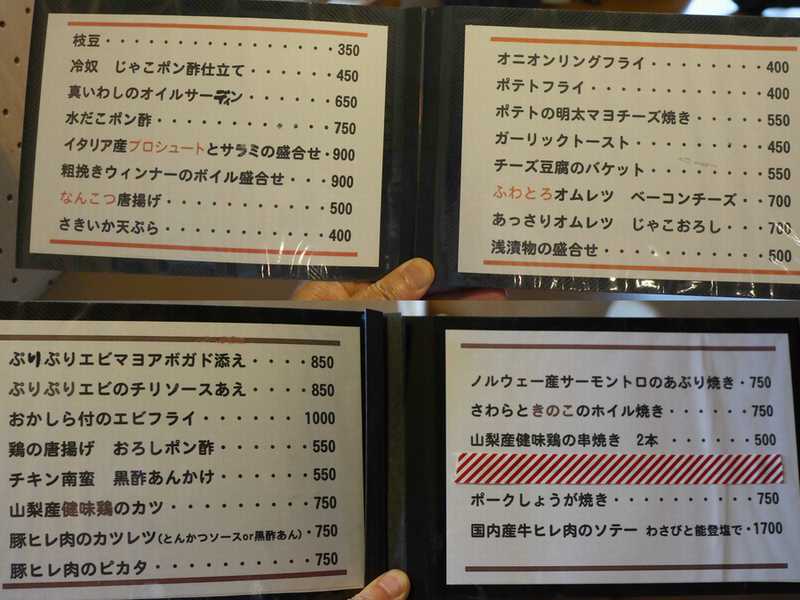 枝豆・・・・・・・・・・・・・・・350
冷奴　じゃこポン酢仕立て・・・・・・・450
真いわしのオイルサーディン・・・・・・650
水だこポン酢・・・・・・・・・・・750
イタリア産プロシュートとサラミの盛合せ・900
粗挽きウィンナーのボイル盛合せ・・・900
なんこつ唐揚げ・・・・・・・・・・500
さきいか天ぷら・・・・・・・・・・400
オニオンリングフライ・・・・・・・400
ポテトフライ・・・・・・・・・・・400
ポテトの明太マヨチーズ焼き・・・・・550
ガーリックトースト・・・・・・・・450
チーズ豆腐のバケット・・・・・・・550
ふわとろオムレツ　ベーコンチーズ・・700
あっさりオムレツ　じゃこおろし・・・700
浅漬物の盛合せ・・・・・・・・・・500
ぷりぷりエビマヨアボガド添え・・・・850
ぷりぷりエビのチリソースあえ・・・・850
おかしら付のエビフライ・・・・・・1000
鶏の唐揚げ　おろしポン酢・・・・・550
チキン南蛮　黒酢あんかけ・・・・・550
山梨産健味鶏のカツ・・・・・・・・750
豚ヒレ肉のカツレツ(とんかつソースor黒酢あん)・750
豚ヒレ肉のピカタ・・・・・・・・・750
ノルウェー産サーモントロのあぶり焼き・750
さわらときのこのホイル焼き・・・・・750
山梨産健味鶏の串焼き　2本・・・・・・500
ポークしょうが焼き・・・・・・・・・750
国内産牛ヒレ肉のソテー　わさびと能登塩で・1700